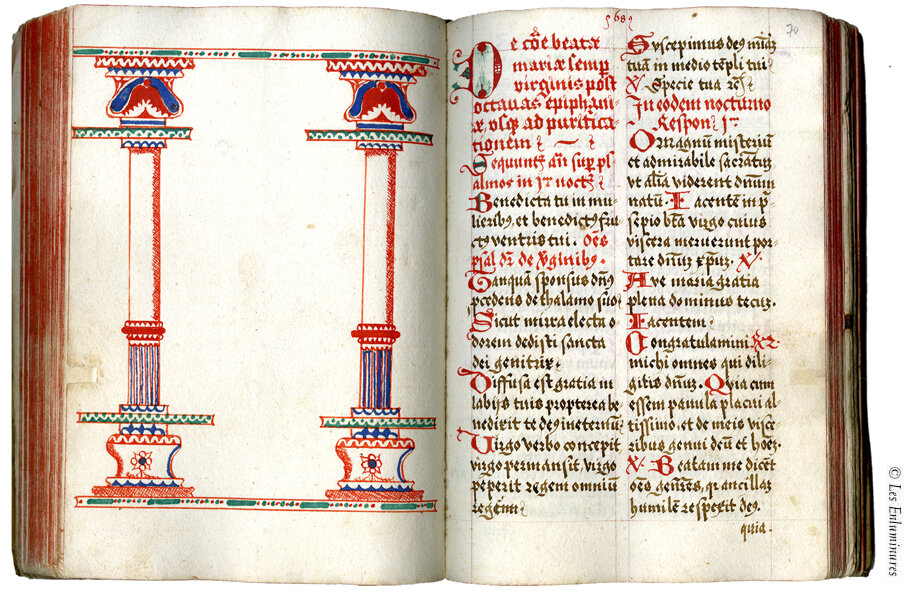 68
70
De cōe beatæ
mariæ semp
virginis post
octauas epiphani
æ, vsqȝ ad purifica
tionem
Sequunt añ sup ps
almos in Iº noct
Benedicta tu in mu
lieribꝰ, et benedictꝰ fru
ctꝰ ventris tui. Oēs
psal dr de Vginibꝰ.
Tanquā sponsus dñs
pcedens de thalamo suo
Sicut mirra electa o
dorem dedisti sancta
dei genitrix
Diffusa est gratia in
labijs tuis propterea be
nedixit te deꝰ in eternū
Virgo verbo concepit
virgo permansit virgo
peperit regem omniū
regem
Suscepimus deꝰ miām
tuā in medio tēpli tui
V. Specie tua
In eodem nocturno
Respon. Iº
O magnum misteriū
et admirabile sacrātū
vt aīalia viderent dnum
natū. Iacentem in p
sepio btā virgo cuius
viscera meruerunt por
tare dnūm xpum. V.
Aue maria gratia
plena dominus tecū.
Iacentem
Congratulamini R.
michi omnes qui dili
gitis dnūm. Quia cum
essem paruula placui al
tissimo, et de meis visce
ribus genui deū et hoīē.
V. Beatam me dicēt
oēs gen̄es, qꝛ ancillaȝ
humilē respexit deꝰ.
quia.
© Les Enluminures